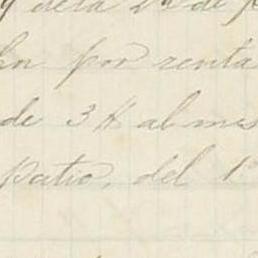 y de la 2ª de
por renta
de 3 # al mes
patio, del 1